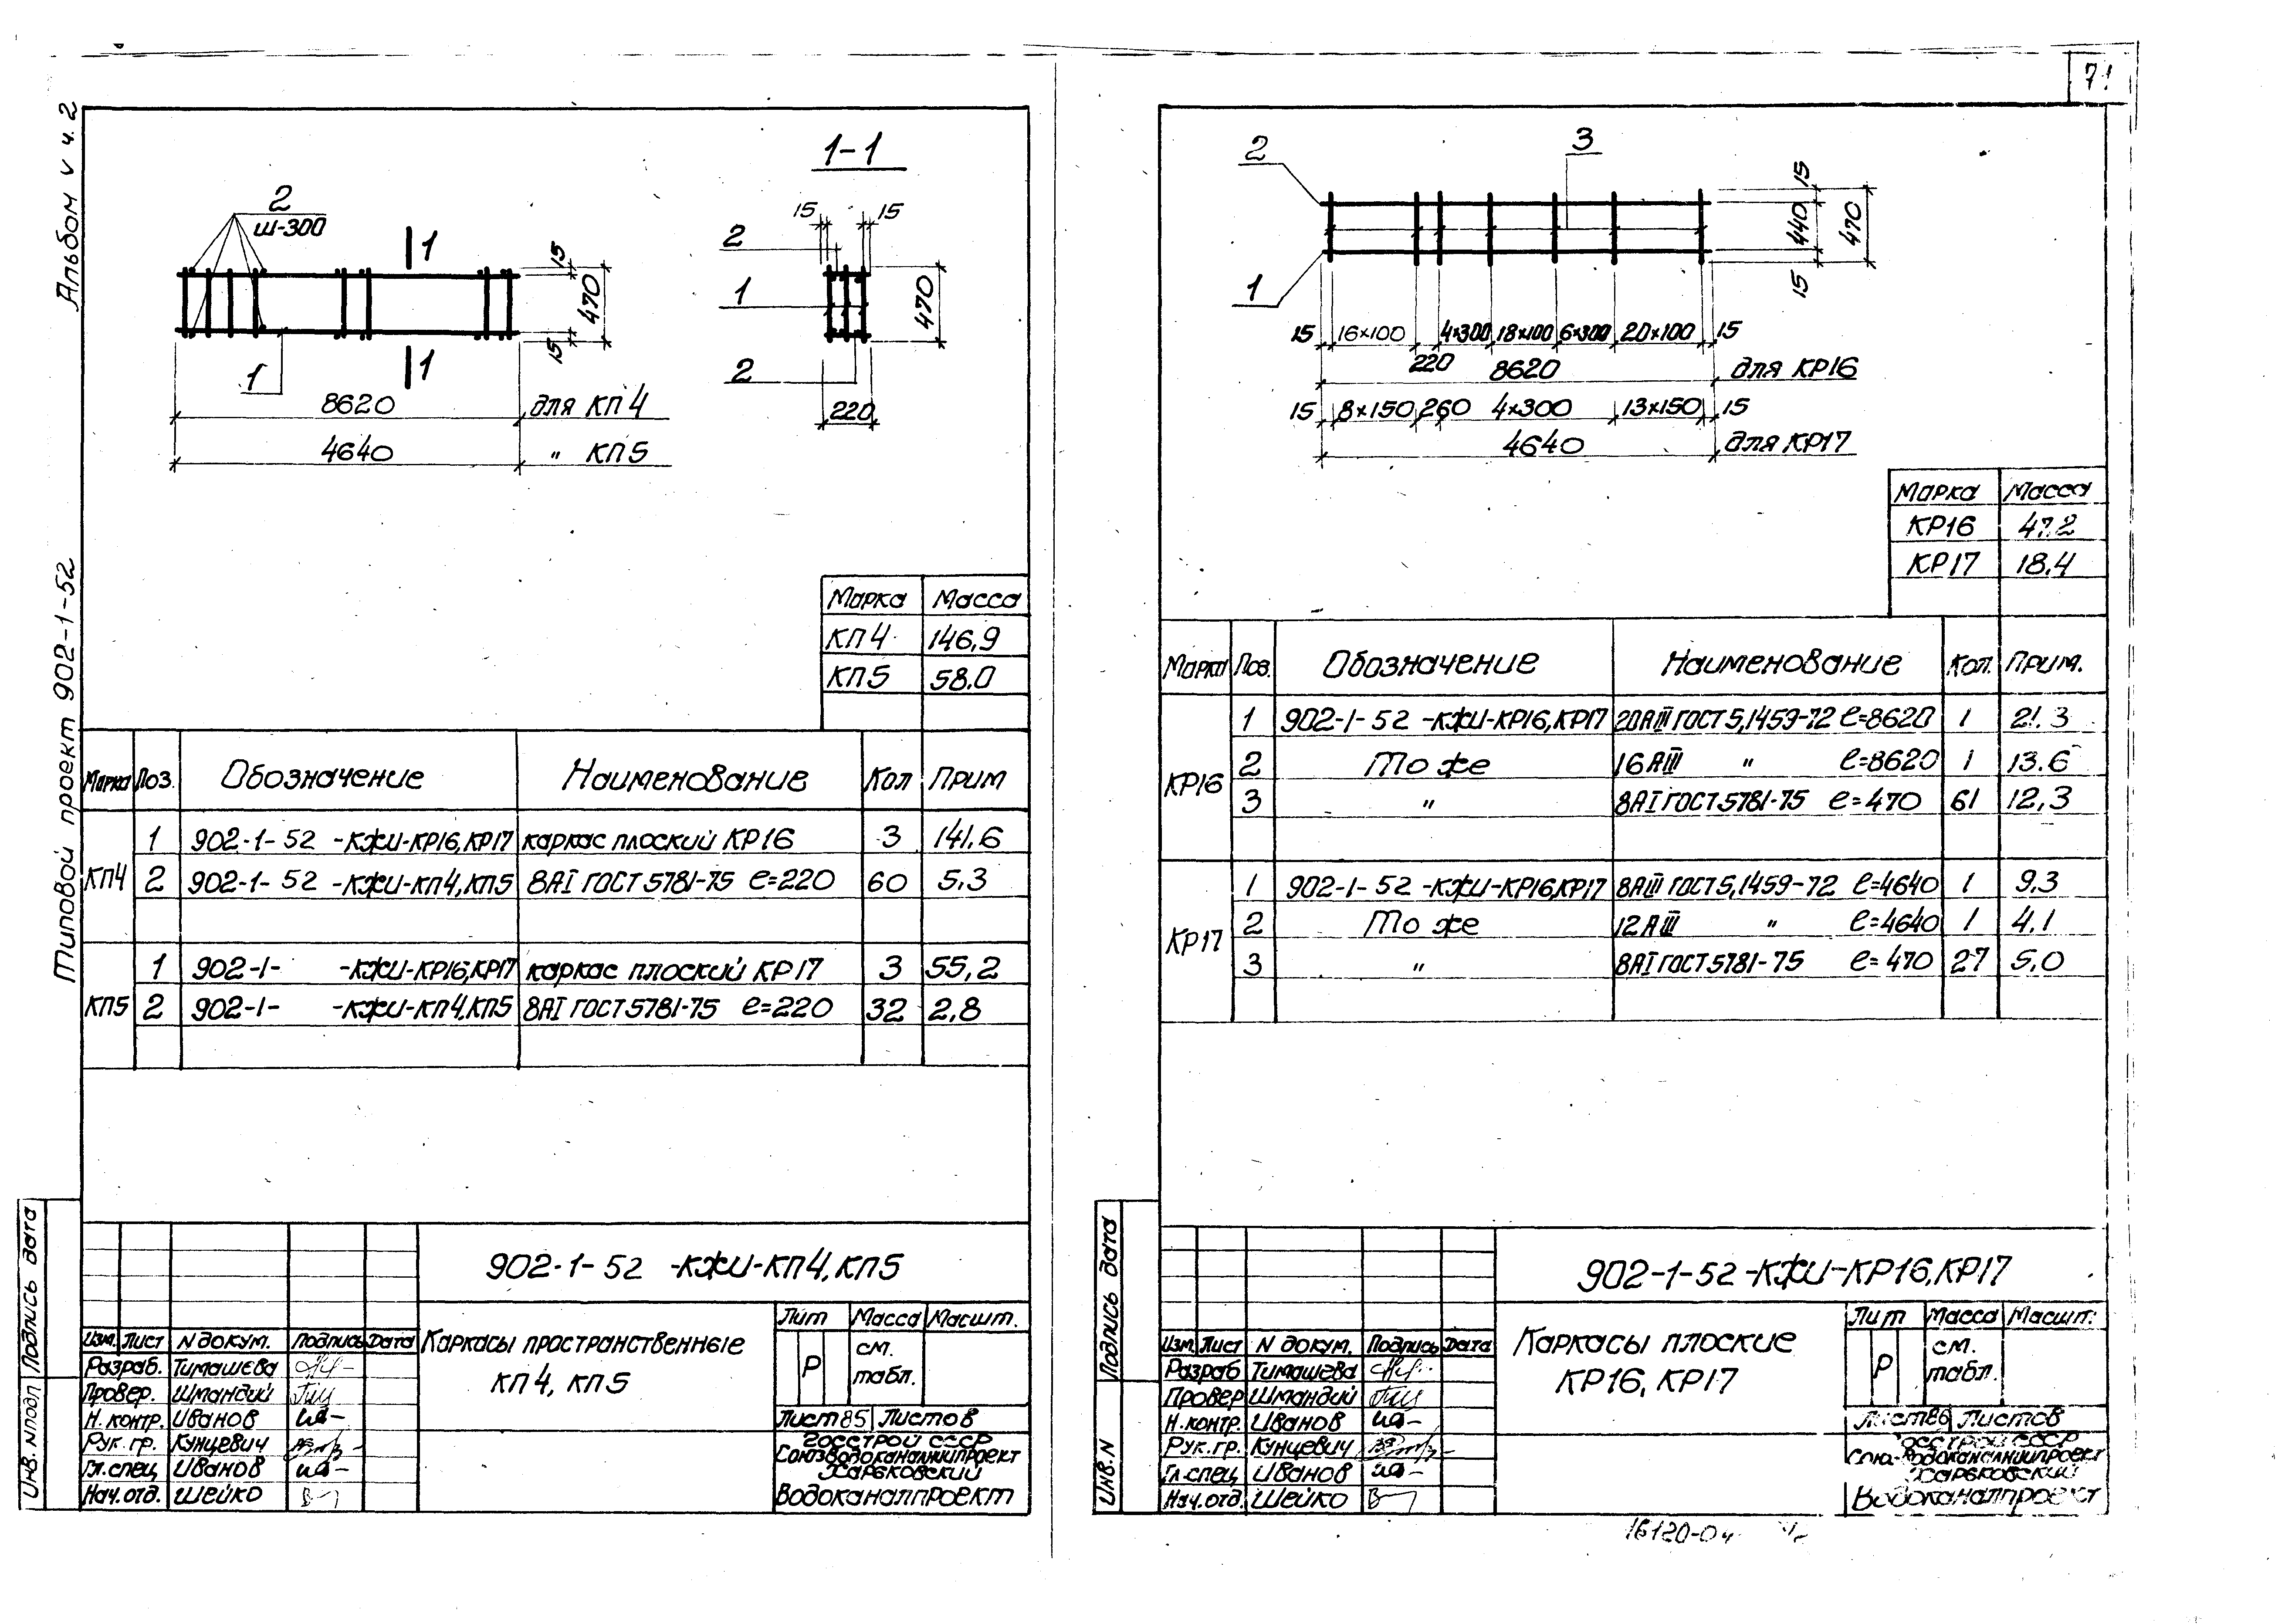 Альбом V ч. 2
Типовой проект 902-1-52
71
2
ш-300
1
1
1
15
470
15
8620 для КП4
4640 " КП5
1-1
15 15
2
1
2
470
220
Марка Масса
КП4 146,9
КП5 58.0
Марка Поз. Обозначение Наименование Кол Прим
КП4
1 902-1-52 -КЖИ-КР16,КР17 каркас плоский КР16 3 141.6
2 902-1-52 -КЖИ-КП4,КП5 8АI ГОСТ 5781-75 ℓ=220 60 5.3
КП5
1 902-1- -КЖИ-КР16,КР17 каркас плоский КР17 3 55,2
2 902-1- -КЖИ-КП4,КП5 8АI ГОСТ 5781-75 ℓ=220 32 2,8
902-1-52 -КЖИ-КП4,КП5
Каркасы пространственные
КП4, КП5
Лит Масса Масшт.
Р см. табл.
Лист 85 Листов
Госстрой СССР
Союзводоканалниипроект
Харьковский
Водоканалпроект
Изм. Лист N докум. Подпись Дата
Разраб. Тимашева
Провер. Шмандий
Н. контр. Иванов
Рук. гр. Кунцевич
Гл. спец Иванов
Нач. отд. Шейко
Инв. N подл Подпись дата
2
3
1
15
440
15
470
15 16×100 220 4×300 18×100 6×300 20×100 15
8620 для КР16
15 8×150 260 4×300 13×150 15
4640 для КР17
Марка Масса
КР16 47.2
КР17 18.4
Марка Поз. Обозначение Наименование Кол. Прим.
КР16
1 902-1-52 -КЖИ-КР16,КР17 20АIII ГОСТ 5,1459-72 ℓ=8620 1 21.3
2 То же 16АIII " ℓ=8620 1 13.6
3 " 8АI ГОСТ 5781-75 ℓ=470 61 12,3
КР17
1 902-1-52 -КЖИ-КР16,КР17 8АIII ГОСТ 5,1459-72 ℓ=4640 1 9.3
2 То же 12АIII " ℓ=4640 1 4.1
3 " 8АI ГОСТ 5781-75 ℓ=470 27 5,0
902-1-52-КЖИ-КР16,КР17
Каркасы плоские
КР16, КР17
Лит Масса Масшт.
Р см. табл.
Лист 86 Листов
Госстрой СССР
Союзводоканалниипроект
Харьковский
Водоканалпроект
Изм. Лист N докум. Подпись Дата
Разраб Тимашева
Провер Шмандий
Н. контр. Иванов
Рук. гр. Кунцевич
Гл. спец Иванов
Нач. отд. Шейко
Инв. N Подпись дата
16120-04